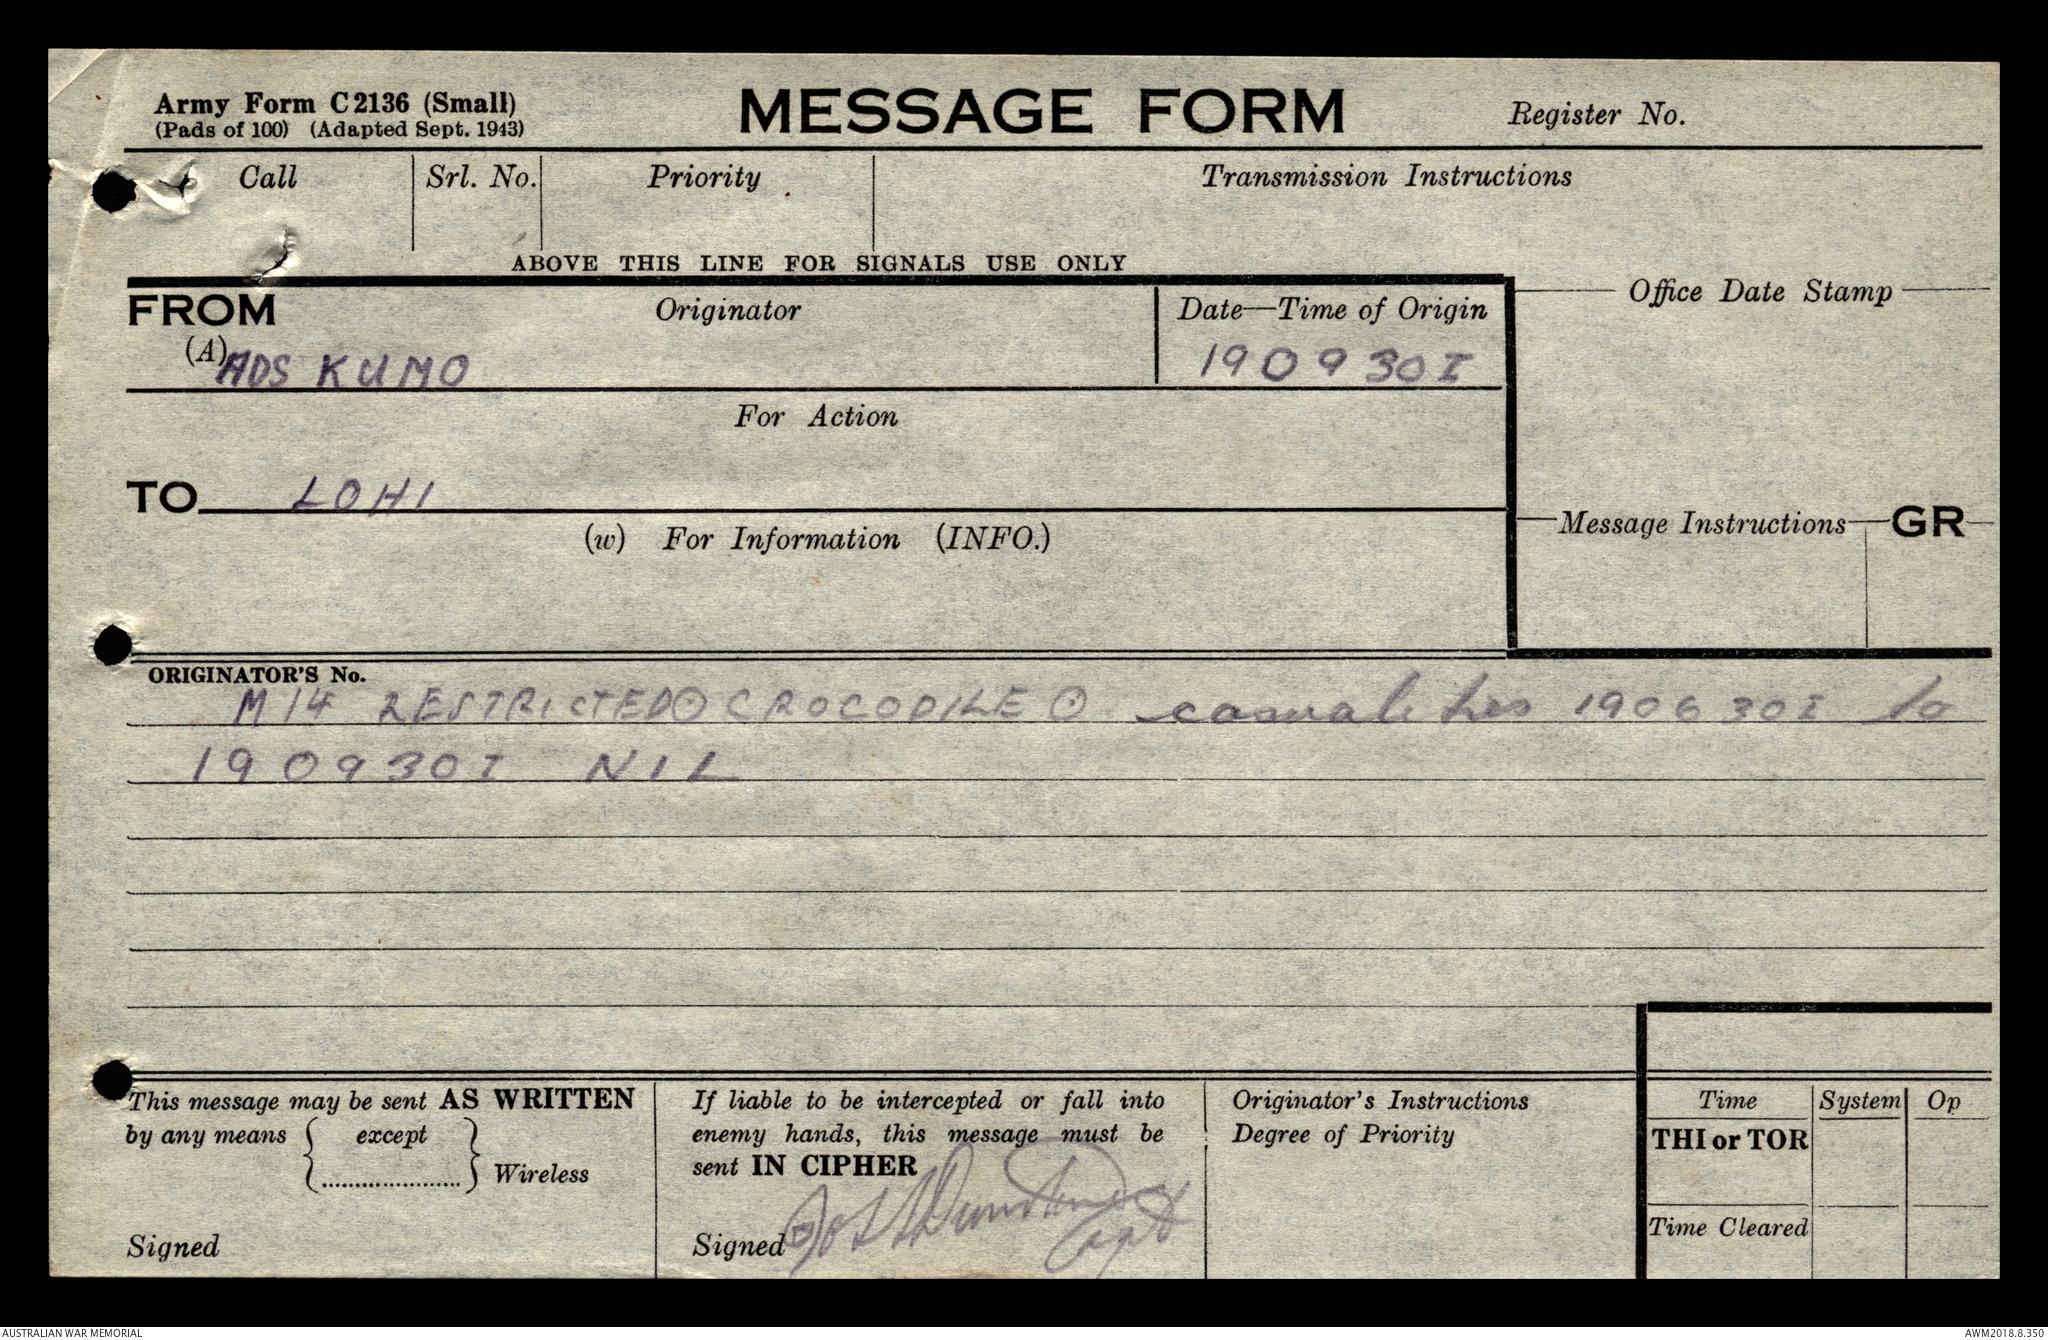 Army Form C2136 (Small)
(Pads of 100) (Adapted Sept. 1943)
MESSAGE FORM
Register No.
Call
Srl. No.
Priority
Transmission Instructions
ABOVE THIS LINE FOR SIGNALS USE ONLY
FROM
Originator
Date—Time of Origin
Office Date Stamp
(A) ADS KUMO
190930I
For Action
TO LOHI
(w) For Information (INFO.)
Message Instructions
GR
ORIGINATOR'S No.
M14 RESTRICTED ⊙ CROCODILE ⊙ casualties 190630I to
190930I NIL
This message may be sent AS WRITTEN
by any means { except .................... } Wireless
Signed
If liable to be intercepted or fall into
enemy hands, this message must be
sent IN CIPHER
Signed
Capt
Originator's Instructions
Degree of Priority
Time
System
Op
THI or TOR
Time Cleared
AUSTRALIAN WAR MEMORIAL
AWM2018.8.350